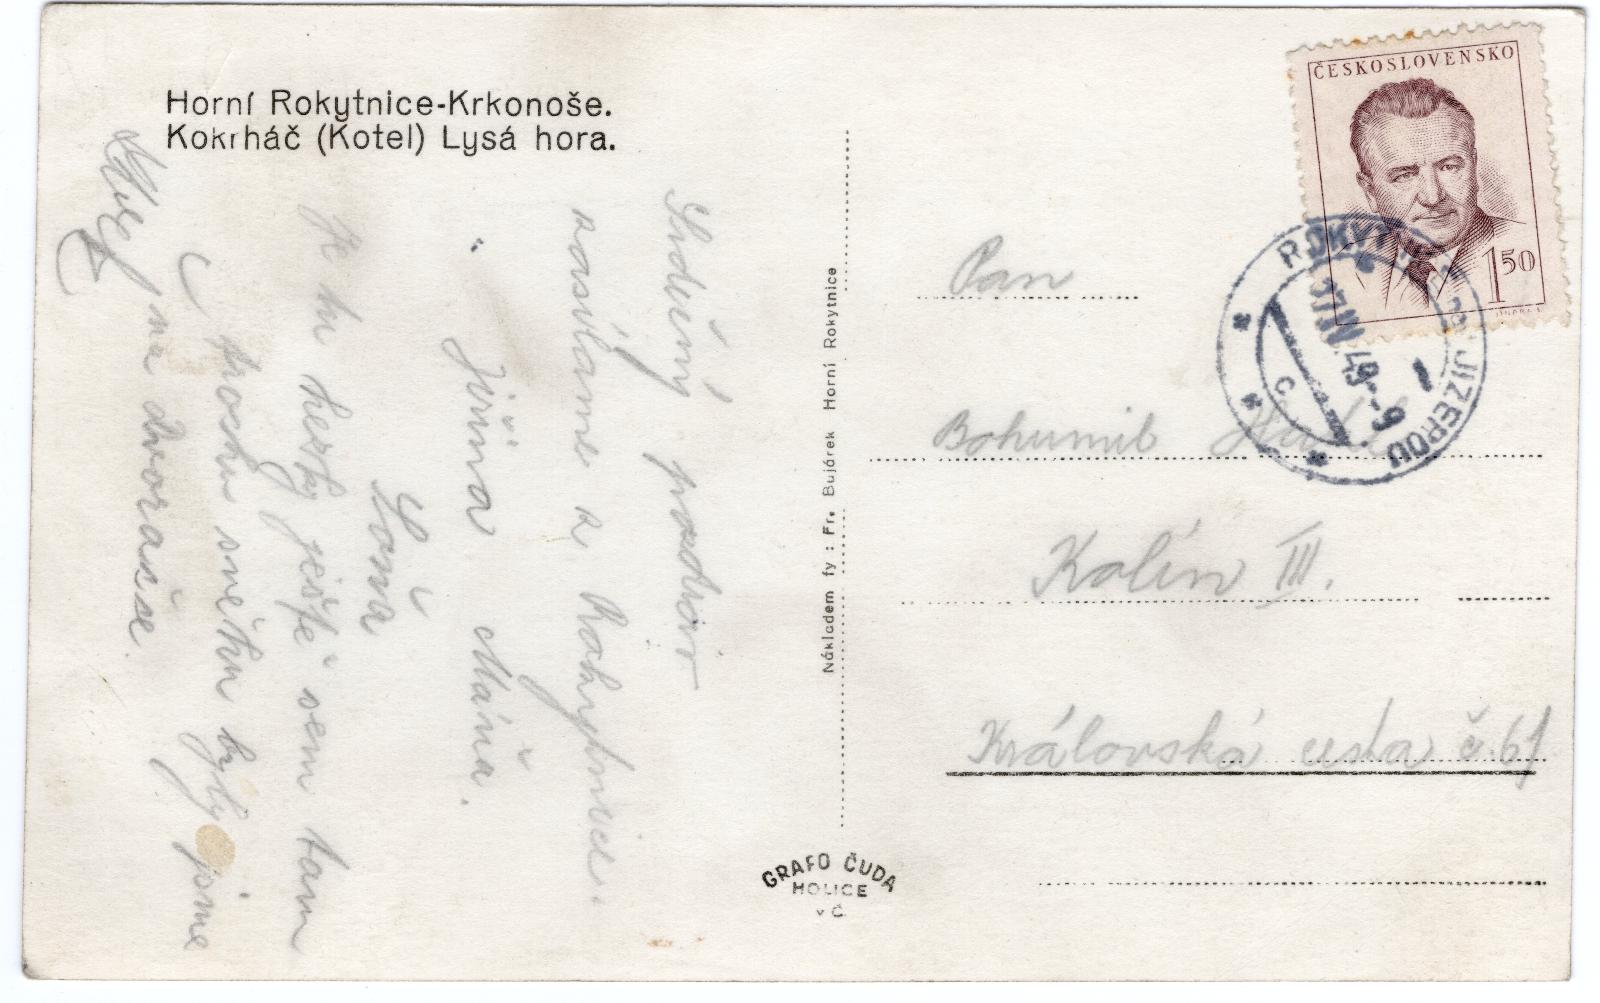 Horní Rokytnice-Krkonoše.
Kokrháč (Kotel) Lysá hora.
Srdečný pozdrav
zasíláme z Rokytnice.
Jiřina Máňa.
Soňa
Je tu hezky ještě sem tam
trochu sněhu byly jsme
na Dvoračce.
Nákladem fy : Fr. Bujárek Horní Rokytnice
GRAFO ČUDA
HOLICE
v Č.
ČESKOSLOVENSKO
1 50
ROKYTNICE NAD JIZEROU
49 - 9
c
Pan
Bohumil
Kolín III.
Královská cesta č. 61